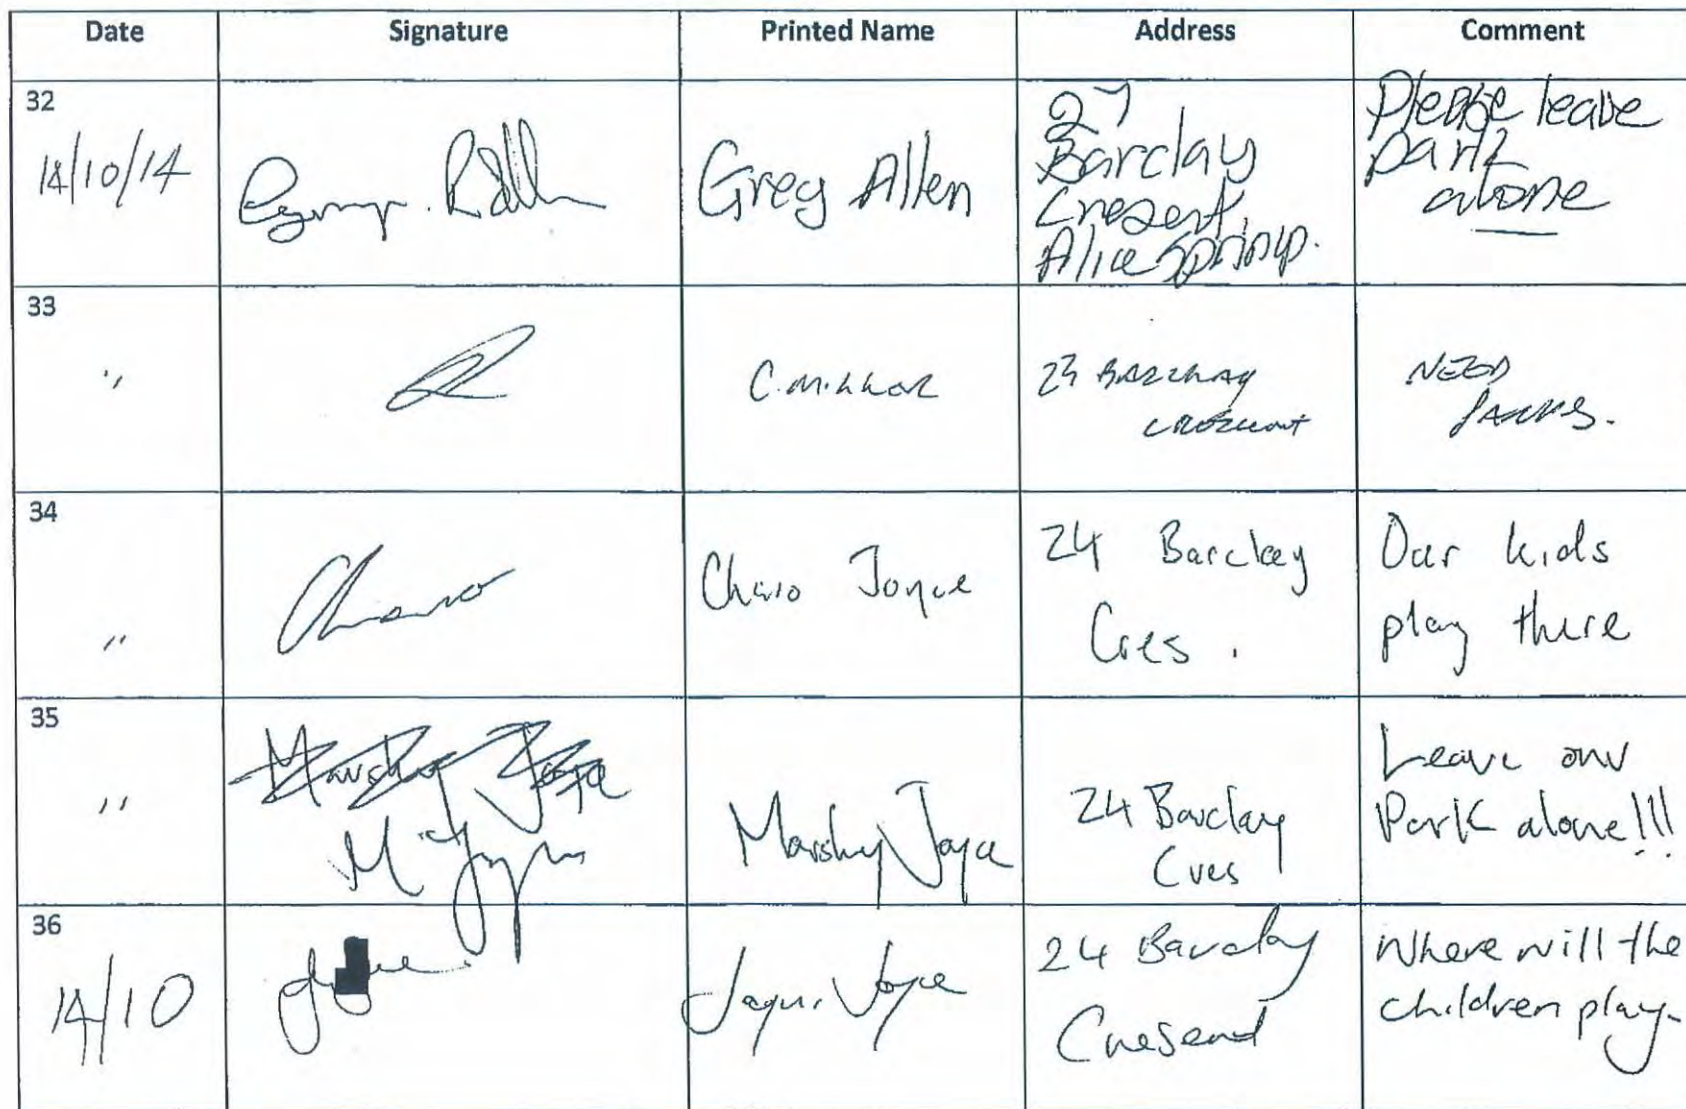 Date Signature Printed Name Address Comment
32
14/10/14 Greg Allen
27
Barclay
Cresent
Alice Springs.
Please leave
park
alone
33
" C. Millar
23 BARCLAY
CRESCENT
NEED
PARKS.
34
" Joyce
24 Barclay
Cres.
Our kids
play there
35
Joyce
" M Joyce
Joyce
24 Barclay
Cres
Leave our
Park alone!!!
36
14/10 Joyce
24 Barclay
Cresent
Where will the
children play.